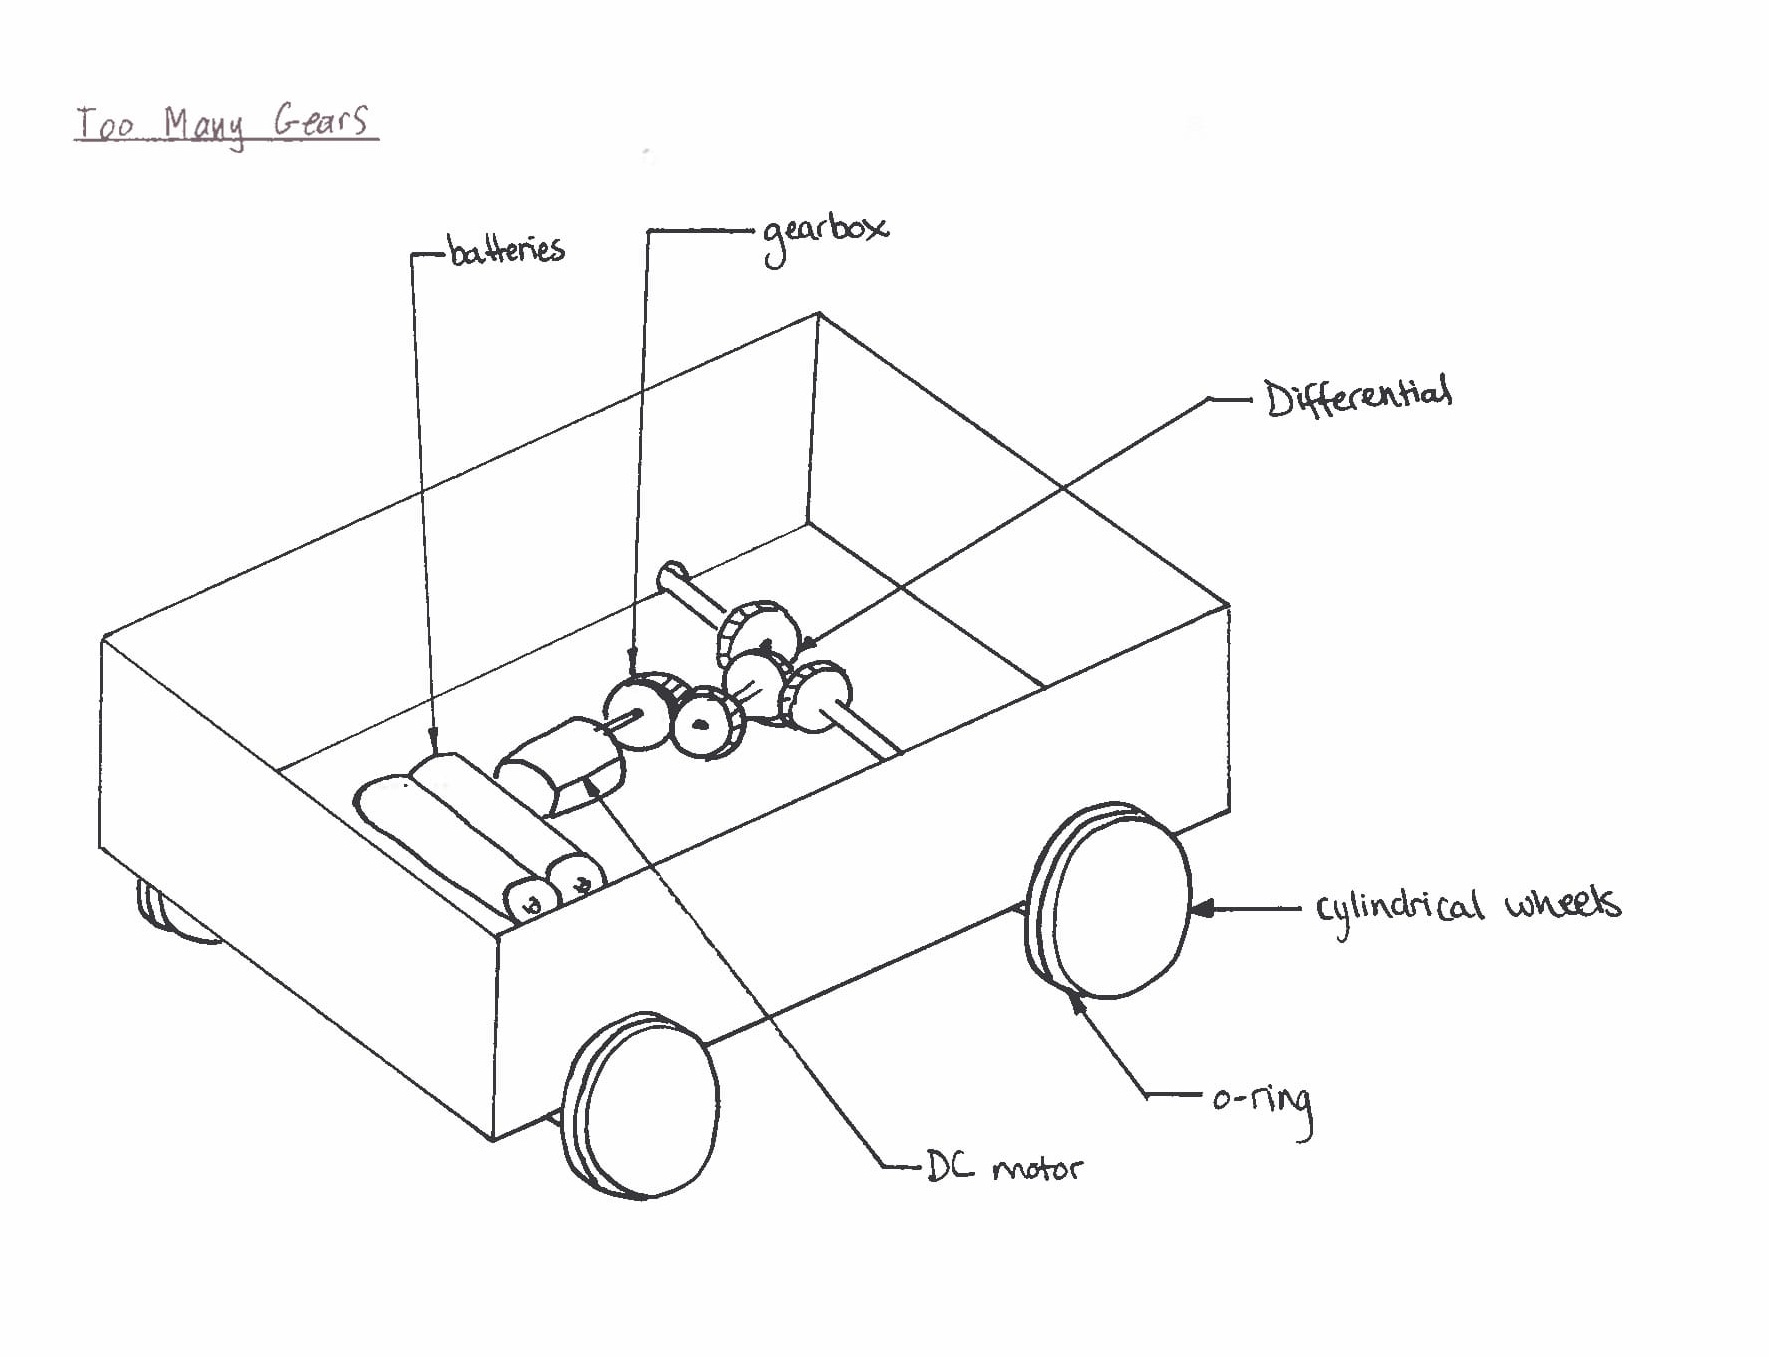 Too Many Gears
batteries
gearbox
Differential
cylindrical wheels
o-ring
DC motor